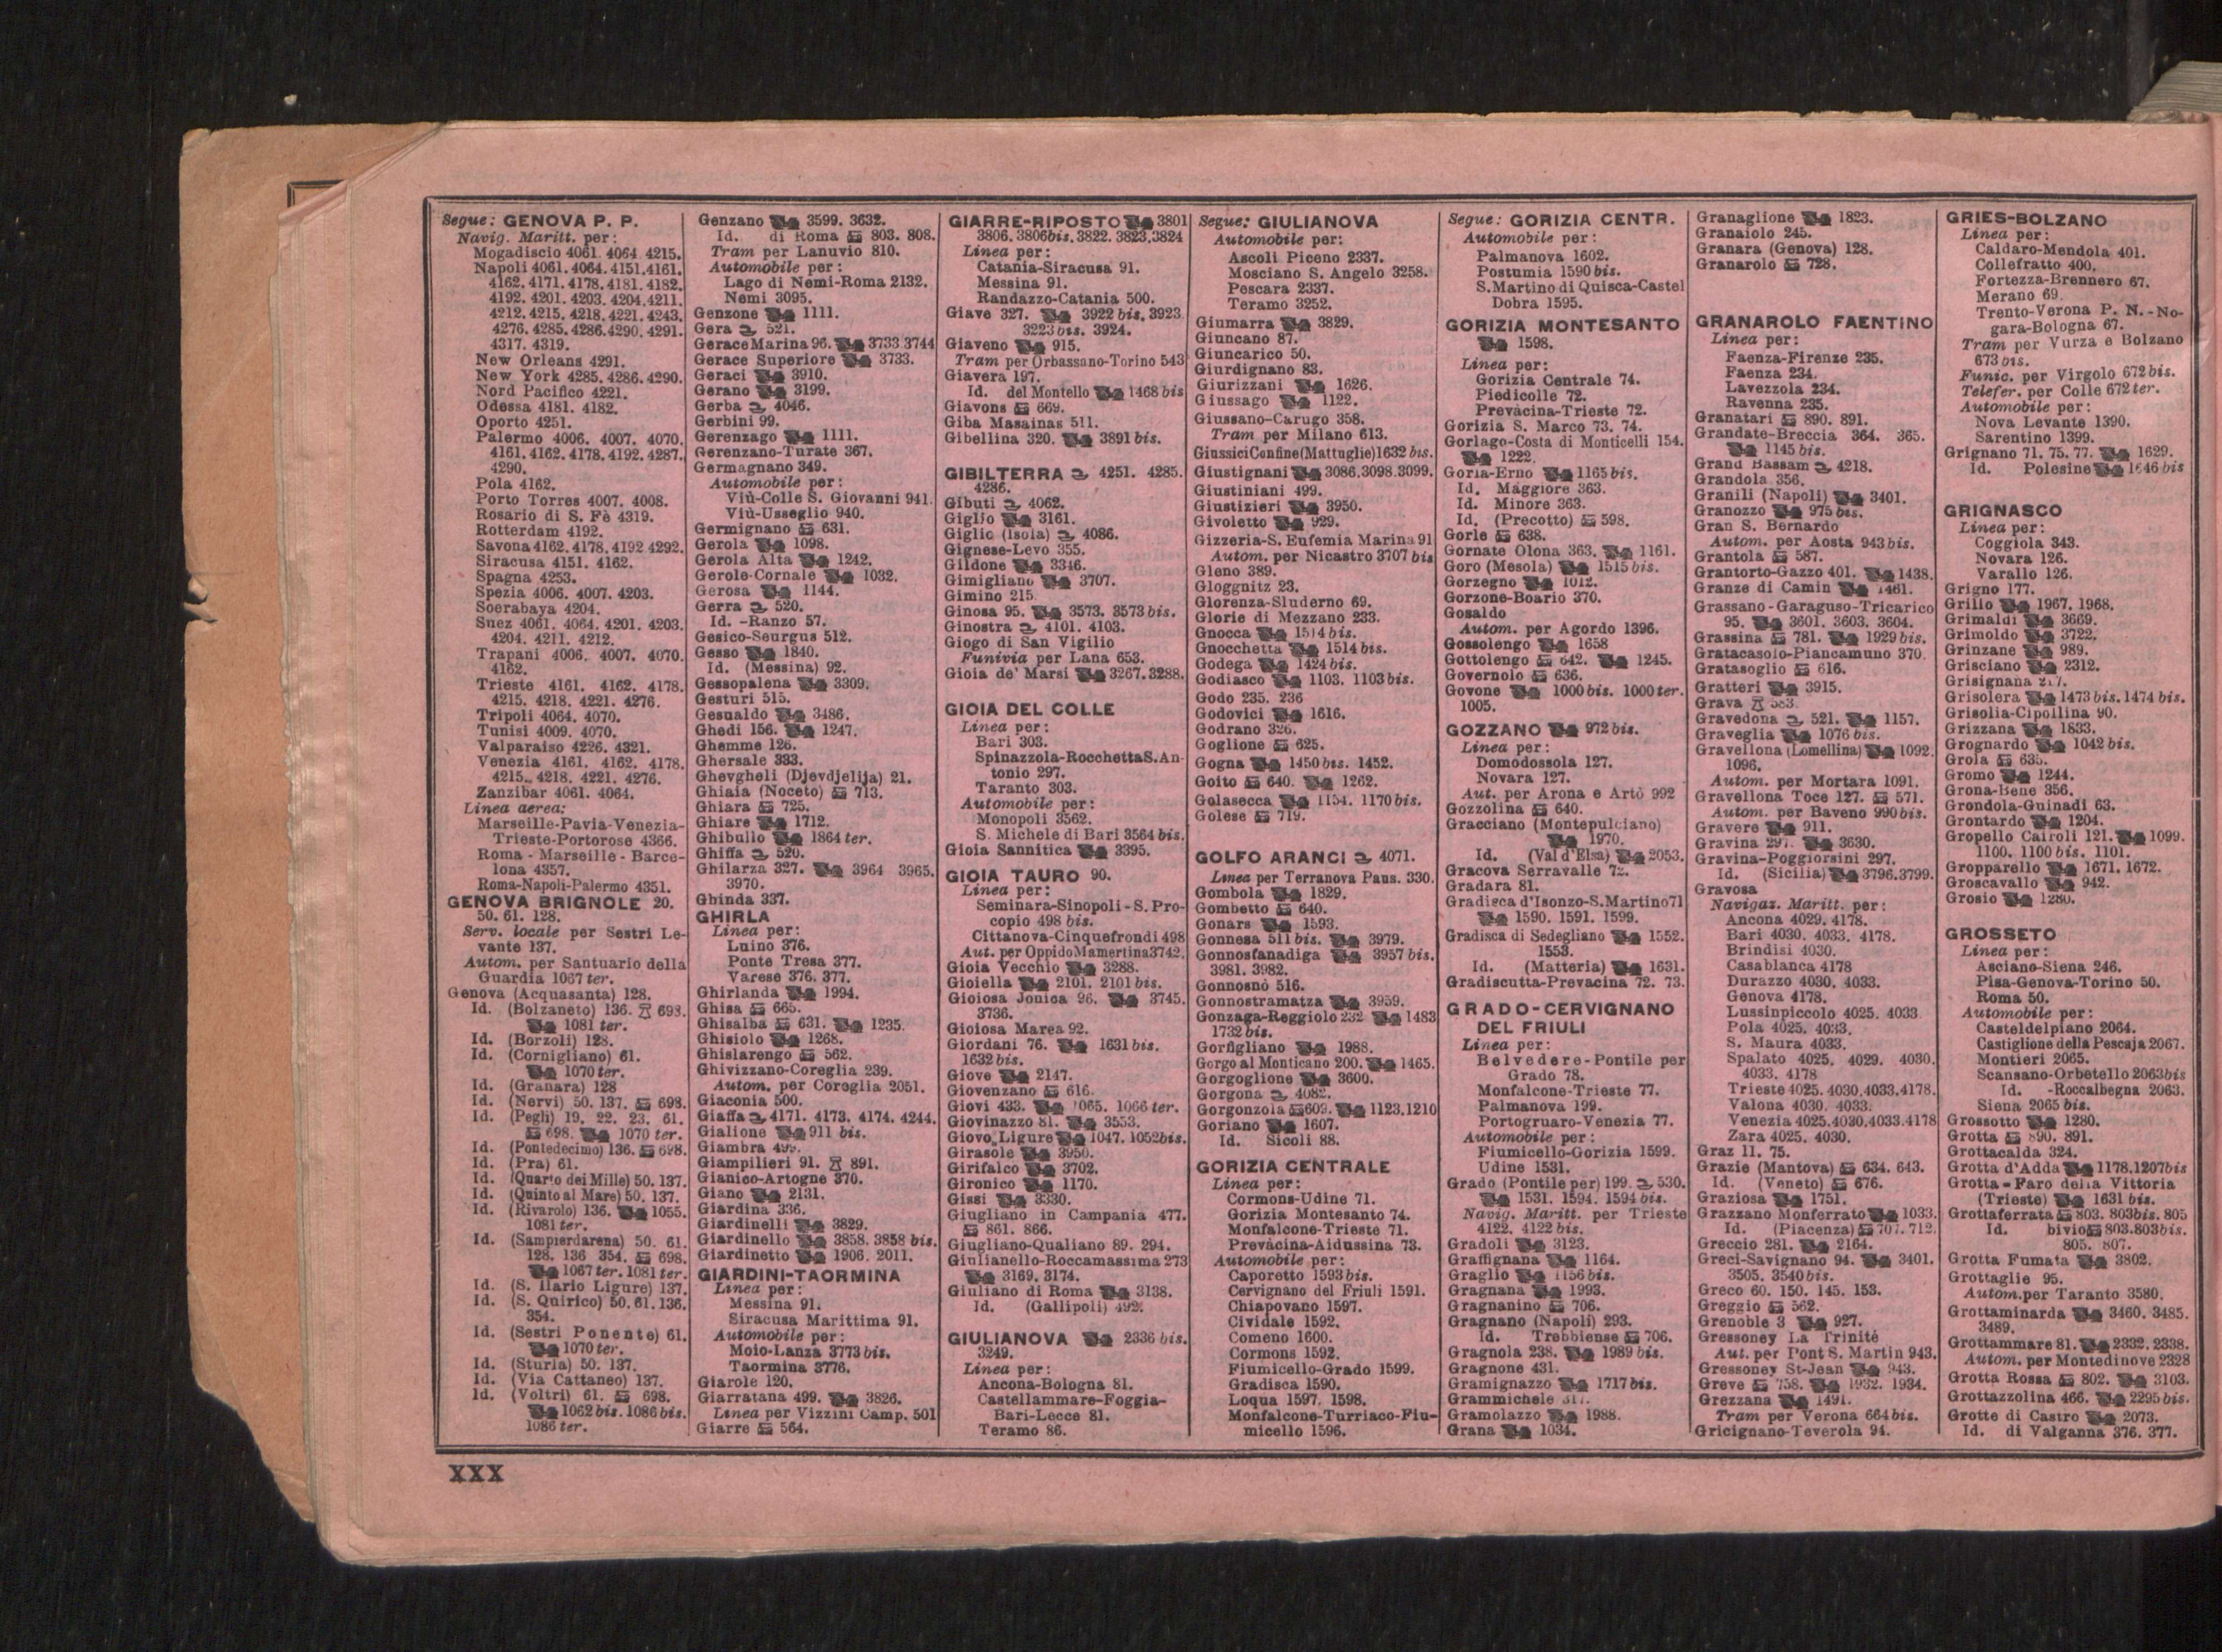 Segue: GENOVA P. P.
Navig. Maritt. per:
Mogadiscio 4061. 4064. 4215.
Napoli 4061. 4064. 4151. 4161.
4162. 4171. 4178. 4181. 4182.
4192. 4201. 4203. 4204. 4211.
4212. 4215. 4218. 4221. 4243.
4276. 4285. 4286. 4290. 4291.
4317. 4319.
New Orleans 4291.
New York 4285. 4286. 4290.
Nord Pacifico 4221.
Odessa 4181. 4182.
Oporto 4251.
Palermo 4006. 4007. 4070.
4161. 4162. 4178. 4192. 4287.
4290.
Pola 4162.
Porto Torres 4007. 4008.
Rosario di S. Fè 4319.
Rotterdam 4192.
Savona 4162. 4178. 4192. 4292.
Siracusa 4151. 4162.
Spagna 4253.
Spezia 4006. 4007. 4203.
Soerabaya 4204.
Suez 4061. 4064. 4201. 4203.
4204. 4211. 4212.
Trapani 4006. 4007. 4070.
4162.
Trieste 4161. 4162. 4178.
4215. 4218. 4221. 4276.
Tripoli 4064. 4070.
Tunisi 4009. 4070.
Valparaiso 4226. 4321.
Venezia 4161. 4162. 4178.
4215. 4218. 4221. 4276.
Zanzibar 4061. 4064.
Linea aerea:
Marseille-Pavia-Venezia-
Trieste-Portorose 4366.
Roma - Marseille - Barce-
lona 4357.
Roma-Napoli-Palermo 4351.
GENOVA BRIGNOLE 20.
50. 61. 128.
Serv. locale per Sestri Le-
vante 137.
Autom. per Santuario della
Guardia 1067 ter.
Genova (Acquasanta) 128.
Id. (Bolzaneto) 136. 693.
1081 ter.
Id. (Borzoli) 128.
Id. (Cornigliano) 61.
1070 ter.
Id. (Granara) 128
Id. (Nervi) 50. 137. 698.
Id. (Pegli) 19. 22. 23. 61.
698. 1070 ter.
Id. (Pontedecimo) 136. 698.
Id. (Pra) 61.
Id. (Quarto dei Mille) 50. 137.
Id. (Quinto al Mare) 50. 137.
Id. (Rivarolo) 136. 1055.
1081 ter.
Id. (Sampierdarena) 50. 61.
128. 136 354. 698.
1067 ter. 1081 ter.
Id. (S. Ilario Ligure) 137.
Id. (S. Quirico) 50. 61. 136.
354.
Id. (Sestri Ponente) 61.
1070 ter.
Id. (Sturla) 50. 137.
Id. (Via Cattaneo) 137.
Id. (Voltri) 61. 698.
1062 bis. 1086 bis.
1086 ter.
Genzano 3599. 3632.
Id. di Roma 803. 808.
Tram per Lanuvio 810.
Automobile per:
Lago di Nemi-Roma 2132.
Nemi 3095.
Genzone 1111.
Gera 521.
Gerace Marina 96. 3733 3744
Gerace Superiore 3733.
Geraci 3910.
Gerano 3199.
Gerba 4046.
Gerbini 99.
Gerenzago 1111.
Gerenzano-Turate 367.
Germagnano 349.
Automobile per:
Viù-Colle S. Giovanni 941.
Viù-Usseglio 940.
Germignano 631.
Gerola 1098.
Gerola Alta 1242.
Gerole-Cornale 1032.
Gerosa 1144.
Gerra 520.
Id. -Ranzo 57.
Gesico-Seurgus 512.
Gesso 1840.
Id. (Messina) 92.
Gessopalena 3309.
Gesturi 515.
Gesualdo 3486.
Ghedi 156. 1247.
Ghemme 126.
Ghersale 333.
Ghevgheli (Djevdjelija) 21.
Ghiaia (Noceto) 713.
Ghiara 725.
Ghiare 1712.
Ghibullo 1864 ter.
Ghiffa 520.
Ghilarza 327. 3964 3965.
3970.
Ghinda 337.
GHIRLA
Linea per:
Luino 376.
Ponte Tresa 377.
Varese 376. 377.
Ghirlanda 1994.
Ghisa 665.
Ghisalba 631. 1235.
Ghisiolo 1268.
Ghislarengo 562.
Ghivizzano-Coreglia 239.
Autom. per Coreglia 2051.
Giaconia 500.
Giaffa 4171. 4173. 4174. 4244.
Gialione 911 bis.
Giambra 499.
Giampilieri 91. 891.
Gianico-Artogne 370.
Giano 2131.
Giardina 336.
Giardinelli 3829.
Giardinello 3858. 3858 bis.
Giardinetto 1906. 2011.
GIARDINI-TAORMINA
Linea per:
Messina 91.
Siracusa Marittima 91.
Automobile per:
Moio-Lanza 3773 bis.
Taormina 3776.
Giarole 120.
Giarratana 499. 3826.
Linea per Vizzini Camp. 501
Giarre 564.
GIARRE-RIPOSTO 3801
3806. 3806 bis. 3822. 3823. 3824
Linea per:
Catania-Siracusa 91.
Messina 91.
Randazzo-Catania 500.
Giave 327. 3922 bis. 3923
3223 bis. 3924.
Giaveno 915.
Tram per Orbassano-Torino 543
Giavera 197.
Id. del Montello 1468 bis
Giavons 669.
Giba Masainas 511.
Gibellina 320. 3891 bis.
GIBILTERRA 4251. 4285.
4286.
Gibuti 4062.
Giglio 3161.
Giglio (Isola) 4086.
Gignese-Levo 355.
Gildone 3346.
Gimigliano 3707.
Gimino 215.
Ginosa 95. 3573. 3573 bis.
Ginostra 4101. 4103.
Giogo di San Vigilio
Funivia per Lana 653.
Gioia de' Marsi 3267. 3288.
GIOIA DEL COLLE
Linea per:
Bari 303.
Spinazzola-Rocchetta S. An-
tonio 297.
Taranto 303.
Automobile per:
Monopoli 3562.
S. Michele di Bari 3564 bis.
Gioia Sannitica 3395.
GIOIA TAURO 90.
Linea per:
Seminara-Sinopoli - S. Pro-
copio 498 bis.
Cittanova-Cinquefrondi 498
Aut. per Oppido Mamertina 3742.
Gioia Vecchio 3288.
Gioiella 2101. 2101 bis.
Gioiosa Jonica 96. 3745.
3736.
Gioiosa Marea 92.
Giordani 76. 1631 bis.
1632 bis.
Giove 2147.
Giovenzano 616.
Giovi 433. 1065. 1066 ter.
Giovinazzo 81. 3553.
Giovo Ligure 1047. 1052 bis.
Girasole 3950.
Girifalco 3702.
Gironico 1170.
Gissi 3330.
Giugliano in Campania 477.
861. 866.
Giugliano-Qualiano 89. 294.
Giulianello-Roccamassima 273
3169. 3174.
Giuliano di Roma 3138.
Id. (Gallipoli) 492.
GIULIANOVA 2336 bis.
3249.
Linea per:
Ancona-Bologna 81.
Castellammare-Foggia-
Bari-Lecce 81.
Teramo 86.
Segue: GIULIANOVA
Automobile per:
Ascoli Piceno 2337.
Mosciano S. Angelo 3258.
Pescara 2337.
Teramo 3252.
Giumarra 3829.
Giuncano 87.
Giuncarico 50.
Giurdignano 83.
Giurizzani 1626.
Giussago 1122.
Giussano-Carugo 358.
Tram per Milano 613.
Giussici Confine (Mattuglie) 1632 bis.
Giustignani 3086. 3098. 3099.
Giustiniani 499.
Giustizieri 3950.
Givoletto 929.
Gizzeria-S. Eufemia Marina 91
Autom. per Nicastro 3707 bis
Gleno 389.
Gloggnitz 23.
Glorenza-Sluderno 69.
Glorie di Mezzano 233.
Gnocca 1514 bis.
Gnocchetta 1514 bis.
Godega 1424 bis.
Godiasco 1103. 1103 bis.
Godo 235. 236
Godovici 1616.
Godrano 326.
Goglione 625.
Gogna 1450 bis. 1452.
Goito 640. 1262.
Golasecca 1154. 1170 bis.
Golese 719.
GOLFO ARANCI 4071.
Linea per Terranova Paus. 330.
Gombola 1829.
Gombetto 640.
Gonars 1593.
Gonnesa 511 bis. 3979.
Gonnosfanadiga 3957 bis.
3981. 3982.
Gonnosnò 516.
Gonnostramatza 3959.
Gonzaga-Reggiolo 232 1483
1732 bis.
Gorfigliano 1988.
Gorgo al Monticano 200. 1465.
Gorgoglione 3600.
Gorgona 4082.
Gorgonzola 609. 1123. 1210
Goriano 1607.
Id. Sicoli 88.
GORIZIA CENTRALE
Linea per:
Cormons-Udine 71.
Gorizia Montesanto 74.
Monfalcone-Trieste 71.
Prevàcina-Aidussina 73.
Automobile per:
Caporetto 1593 bis.
Cervignano del Friuli 1591.
Chiapovano 1597.
Cividale 1592.
Comeno 1600.
Cormons 1592.
Fiumicello-Grado 1599.
Gradisca 1590.
Loqua 1597. 1598.
Monfalcone-Turriaco-Fiu-
micello 1596.
Segue: GORIZIA CENTR.
Automobile per:
Palmanova 1602.
Postumia 1590 bis.
S. Martino di Quisca-Castel
Dobra 1595.
GORIZIA MONTESANTO
1598.
Linea per:
Gorizia Centrale 74.
Piedicolle 72.
Prevàcina-Trieste 72.
Gorizia S. Marco 73. 74.
Gorlago-Costa di Monticelli 154.
1222.
Gorla-Erno 1165 bis.
Id. Maggiore 363.
Id. Minore 363.
Id. (Precotto) 598.
Gorle 638.
Gornate Olona 363. 1161.
Goro (Mesola) 1515 bis.
Gorzegno 1012.
Gorzone-Boario 370.
Gosaldo
Autom. per Agordo 1396.
Gossolengo 1658
Gottolengo 642. 1245.
Governolo 636.
Govone 1000 bis. 1000 ter.
1005.
GOZZANO 972 bis.
Linea per:
Domodossola 127.
Novara 127.
Aut. per Arona e Artò 992
Gozzolina 640.
Gracciano (Montepulciano)
1970.
Id. (Val d'Elsa) 2053.
Gracova Serravalle 72.
Gradara 81.
Gradisca d'Isonzo-S. Martino 71
1590. 1591. 1599.
Gradisca di Sedegliano 1552.
1553.
Id. (Matteria) 1631.
Gradiscutta-Prevacina 72. 73.
GRADO-CERVIGNANO
DEL FRIULI
Linea per:
Belvedere-Pontile per
Grado 78.
Monfalcone-Trieste 77.
Palmanova 199.
Portogruaro-Venezia 77.
Automobile per:
Fiumicello-Gorizia 1599.
Udine 1531.
Grado (Pontile per) 199. 530.
1531. 1594. 1594 bis.
Navig. Maritt. per Trieste
4122. 4122 bis.
Gradoli 3123.
Graffignana 1164.
Graglio 1156 bis.
Gragnana 1993.
Gragnanino 706.
Gragnano (Napoli) 293.
Id. Trebbiense 706.
Gragnola 238. 1989 bis.
Gragnone 431.
Gramignazzo 1717 bis.
Grammichele 317.
Gramolazzo 1988.
Grana 1034.
Granaglione 1823.
Granaiolo 245.
Granara (Genova) 128.
Granarolo 728.
GRANAROLO FAENTINO
Linea per:
Faenza-Firenze 235.
Faenza 234.
Lavezzola 234.
Ravenna 235.
Granatari 890. 891.
Grandate-Breccia 364. 365.
1145 bis.
Grand Bassam 4218.
Grandola 356.
Granili (Napoli) 3401.
Granozzo 975 bis.
Gran S. Bernardo
Autom. per Aosta 943 bis.
Grantola 587.
Grantorto-Gazzo 401. 1438.
Granze di Camin 1461.
Grassano-Garaguso-Tricarico
95. 3601. 3603. 3604.
Grassina 781. 1929 bis.
Gratacasolo-Piancamuno 370.
Gratasoglio 616.
Gratteri 3915.
Grava 583.
Gravedona 521. 1157.
Graveglia 1076 bis.
Gravellona (Lomellina) 1092.
1096.
Autom. per Mortara 1091.
Gravellona Toce 127. 571.
Autom. per Baveno 990 bis.
Gravere 911.
Gravina 297. 3630.
Gravina-Poggiorsini 297.
Id. (Sicilia) 3796. 3799.
Gravosa
Navigaz. Maritt. per:
Ancona 4029. 4178.
Bari 4030. 4033. 4178.
Brindisi 4030.
Casablanca 4178
Durazzo 4030. 4033.
Genova 4178.
Lussinpiccolo 4025. 4033
Pola 4025. 4033.
S. Maura 4033.
Spalato 4025. 4029. 4030.
4033. 4178
Trieste 4025. 4030. 4033. 4178.
Valona 4030. 4033.
Venezia 4025. 4030. 4033. 4178
Zara 4025. 4030.
Graz 11. 75.
Grazie (Mantova) 634. 643.
Id. (Veneto) 676.
Graziosa 1751.
Grazzano Monferrato 1033.
Id. (Piacenza) 707. 712.
Greccio 281. 2164.
Greci-Savignano 94. 3401.
3505. 3540 bis.
Greco 60. 150. 145. 153.
Greggio 562.
Grenoble 3 927.
Gressoney La Trinité
Aut. per Pont S. Martin 943.
Gressoney St-Jean 943.
Greve 758. 1932. 1934.
Grezzana 1491.
Tram per Verona 664 bis.
Gricignano-Teverola 94.
GRIES-BOLZANO
Linea per:
Caldaro-Mendola 401.
Collefratto 400.
Fortezza-Brennero 67.
Merano 69.
Trento-Verona P. N.-No-
gara-Bologna 67.
Tram per Vurza e Bolzano
673 bis.
Funic. per Virgolo 672 bis.
Telefer. per Colle 672 ter.
Automobile per:
Nova Levante 1390.
Sarentino 1399.
Grignano 71. 75. 77. 1629.
Id. Polesine 1646 bis
GRIGNASCO
Linea per:
Coggiola 343.
Novara 126.
Varallo 126.
Grigno 177.
Grillo 1967. 1968.
Grimaldi 3669.
Grimoldo 3722.
Grinzane 989.
Grisciano 2312.
Grisignana 217.
Grisolera 1473 bis. 1474 bis.
Grisolia-Cipollina 90.
Grizzana 1833.
Grognardo 1042 bis.
Grola 635.
Gromo 1244.
Grona-Bene 356.
Grondola-Guinadi 63.
Grontardo 1204.
Gropello Cairoli 121. 1099.
1100. 1100 bis. 1101.
Gropparello 1671. 1672.
Groscavallo 942.
Grosio 1280.
GROSSETO
Linea per:
Asciano-Siena 246.
Pisa-Genova-Torino 50.
Roma 50.
Automobile per:
Casteldelpiano 2064.
Castiglione della Pescaja 2067.
Montieri 2065.
Scansano-Orbetello 2063 bis
Id. -Roccalbegna 2063.
Siena 2065 bis.
Grossotto 1280.
Grotta 890. 891.
Grottacalda 324.
Grotta d'Adda 1178. 1207 bis
Grotta - Faro della Vittoria
(Trieste) 1631 bis.
Grottaferrata 803. 803 bis. 805
Id. bivio 803. 803 bis.
805. 807.
Grotta Fumata 3802.
Grottaglie 95.
Autom. per Taranto 3580.
Grottaminarda 3460. 3485.
3489.
Grottammare 81. 2332. 2338.
Autom. per Montedinove 2328
Grotta Rossa 802. 3103.
Grottazzolina 466. 2295 bis.
Grotte di Castro 2073.
Id. di Valganna 376. 377.
XXX